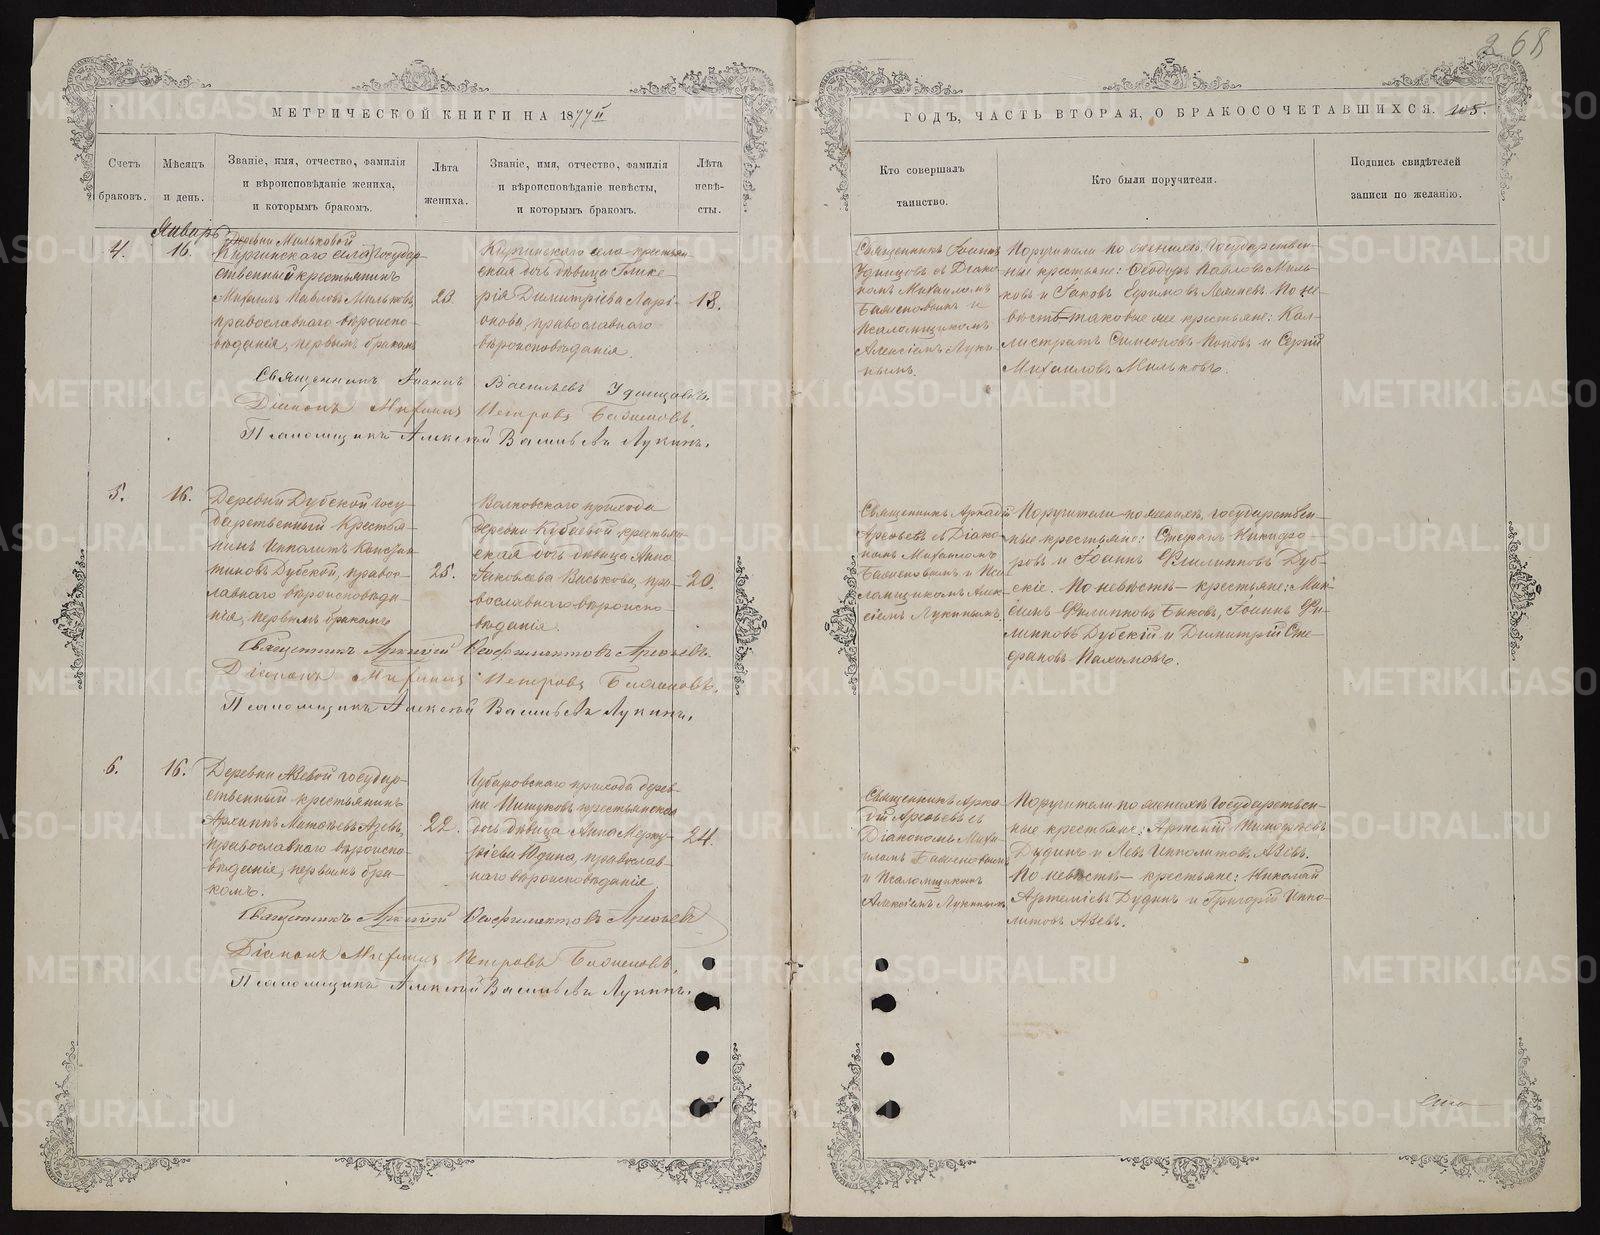 268
МЕТРИЧЕСКОЙ КНИГИ НА 1877
ГОДЪ, ЧАСТЬ ВТОРАЯ, О БРАКОСОЧЕТАВШИХСЯ. 105.
Счетъ браковъ.
Мѣсяцъ и день.
Званіе, имя, отчество, фамилія
и вѣроисповѣданіе жениха,
и которымъ бракомъ.
Лѣта жениха.
Званіе, имя, отчество, фамилія
и вѣроисповѣданіе невѣсты,
и которымъ бракомъ.
Лѣта невѣ-
сты.
Кто совершалъ
таинство.
Кто были поручители.
Подпись свидѣтелей
записи по желанію.
Январь
4.
16.
Деревни Мильковой
Киргинскаго села Государ-
ственный крестьянинъ
Михаилъ Павловъ Мильковъ,
православнаго вѣроиспо-
вѣданія, первымъ бракомъ
23.
Киргинскаго села крестьян-
ская дочь дѣвица Глике-
рія Димитріева Ларі-
онова, православнаго
вѣроисповѣданія.
18.
Священникъ Іоаннъ
Удинцовъ съ Діако-
номъ Михаиломъ
Баженовымъ и
Псаломщикомъ
Алексіемъ Луки-
нымъ.
Поручители по женихѣ, Государствен-
ные крестьяне: Ѳеодоръ Павловъ Миль-
ковъ и Іаковъ Ефимовъ По не-
вѣстѣ таковые же крестьяне: Кал-
листратъ Симеоновъ Поповъ и Сергій
Михаиловъ Мильковъ.
Священникъ Іоаннъ Васильевъ Удинцовъ.
Діаконъ Михаилъ Петровъ Баженовъ.
Псаломщикъ Алексѣй Васильевъ Лукинъ.
5.
16.
Деревни Дубской госу-
дарственный крестья-
нинъ Ипполитъ Констан-
тиновъ Дубской, правос-
лавнаго вѣроисповѣда-
нія, первымъ бракомъ
25.
Волковскаго прихода
деревни Кубаевой крестьян-
ская дочь дѣвица Анна
Іаковлева Васькова, пра-
вославнаго вѣроиспо-
вѣданія.
20.
Священникъ Аркадій
Арефьевъ съ Діако-
номъ Михаиломъ
Баженовымъ и Пса-
ломщикомъ Алек-
сіемъ Лукинымъ
Поручители по женихѣ, государствен-
ные крестьяне: Стефанъ Никифо-
ровъ и Іоаннъ Филипповъ Дуб-
скіе. По невѣстѣ — крестьяне: Мак-
симъ Филипповъ Быковъ, Іоаннъ Фи-
липповъ Дубскій и Димитрій Сте-
фановъ Пахомовъ.
Священникъ Аркадій Ѳеофилактовъ Арефьевъ.
Діаконъ Михаилъ Петровъ Баженовъ.
Псаломщикъ Алексѣй Васильевъ Лукинъ.
6.
16.
Деревни Азевой государ-
ственный крестьянинъ
Архиппъ Матѳеевъ Азевъ,
православнаго вѣроиспо-
вѣданія, первымъ бра-
комъ.
22.
Чубаровскаго прихода дерев-
ни крестьянская
дочь дѣвица Анна Мерку-
ріева Юдина, православ-
наго вѣроисповѣданія.
24.
Священникъ Арка-
дій Арефьевъ съ
Діакономъ Миха-
иломъ Баженовымъ
и Псаломщикомъ
Алексіемъ Лукинымъ
Поручители по женихѣ государствен-
ные крестьяне:
Дудинъ и Левъ Ипполитовъ Азевъ.
По невѣстѣ — крестьяне: Николай
Артеміевъ Дудинъ и Григорій Иппо-
литовъ Азевъ.
Священникъ Аркадій Ѳеофилактовъ Арефьевъ
Діаконъ Михаилъ Петровъ Баженовъ.
Псаломщикъ Алексѣй Васильевъ Лукинъ.
METRIKI.GASO-URAL.RU